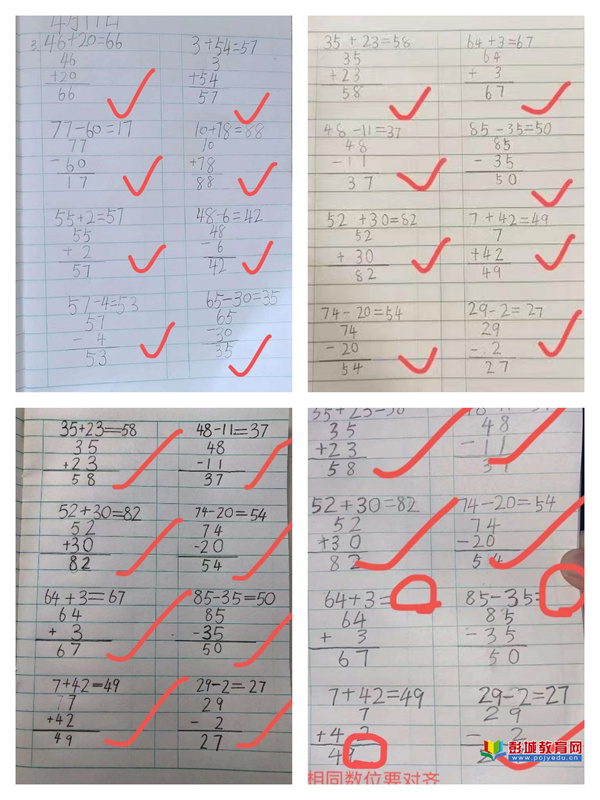 4月11日
3. 46+20=66 3+54=57
46 3
+20 +54
66 57
77-60=17 10+78=88
77 10
-60 +78
17 88
55+2=57 48-6=42
55 48
+2 -6
57 42
57-4=53 65-30=35
57 65
-4 -30
53 35
35+23=58 64+3=67
35 64
+23 +3
58 67
48-11=37 85-35=50
48 85
-11 -35
37 50
52+30=82 7+42=49
52 7
+30 +42
82 49
74-20=54 29-2=27
74 29
-20 -2
54 27
35+23=58 48-11=37
35 48
+23 -11
58 37
52+30=82 74-20=54
52 74
+30 -20
82 54
64+3=67 85-35=50
64 85
+3 -35
67 50
7+42=49 29-2=27
7 29
+42 -2
49 27
35 48
+23 -11
58 37
52+30=82 74-20=54
52 74
+30 -20
82 54
64+3= 85-35=
64 85
+3 -35
67 50
7+42=49 29-2=27
7 29
+42 -2
49
相同数位要对齐
彭城教育网
www.pcjyedu.cn